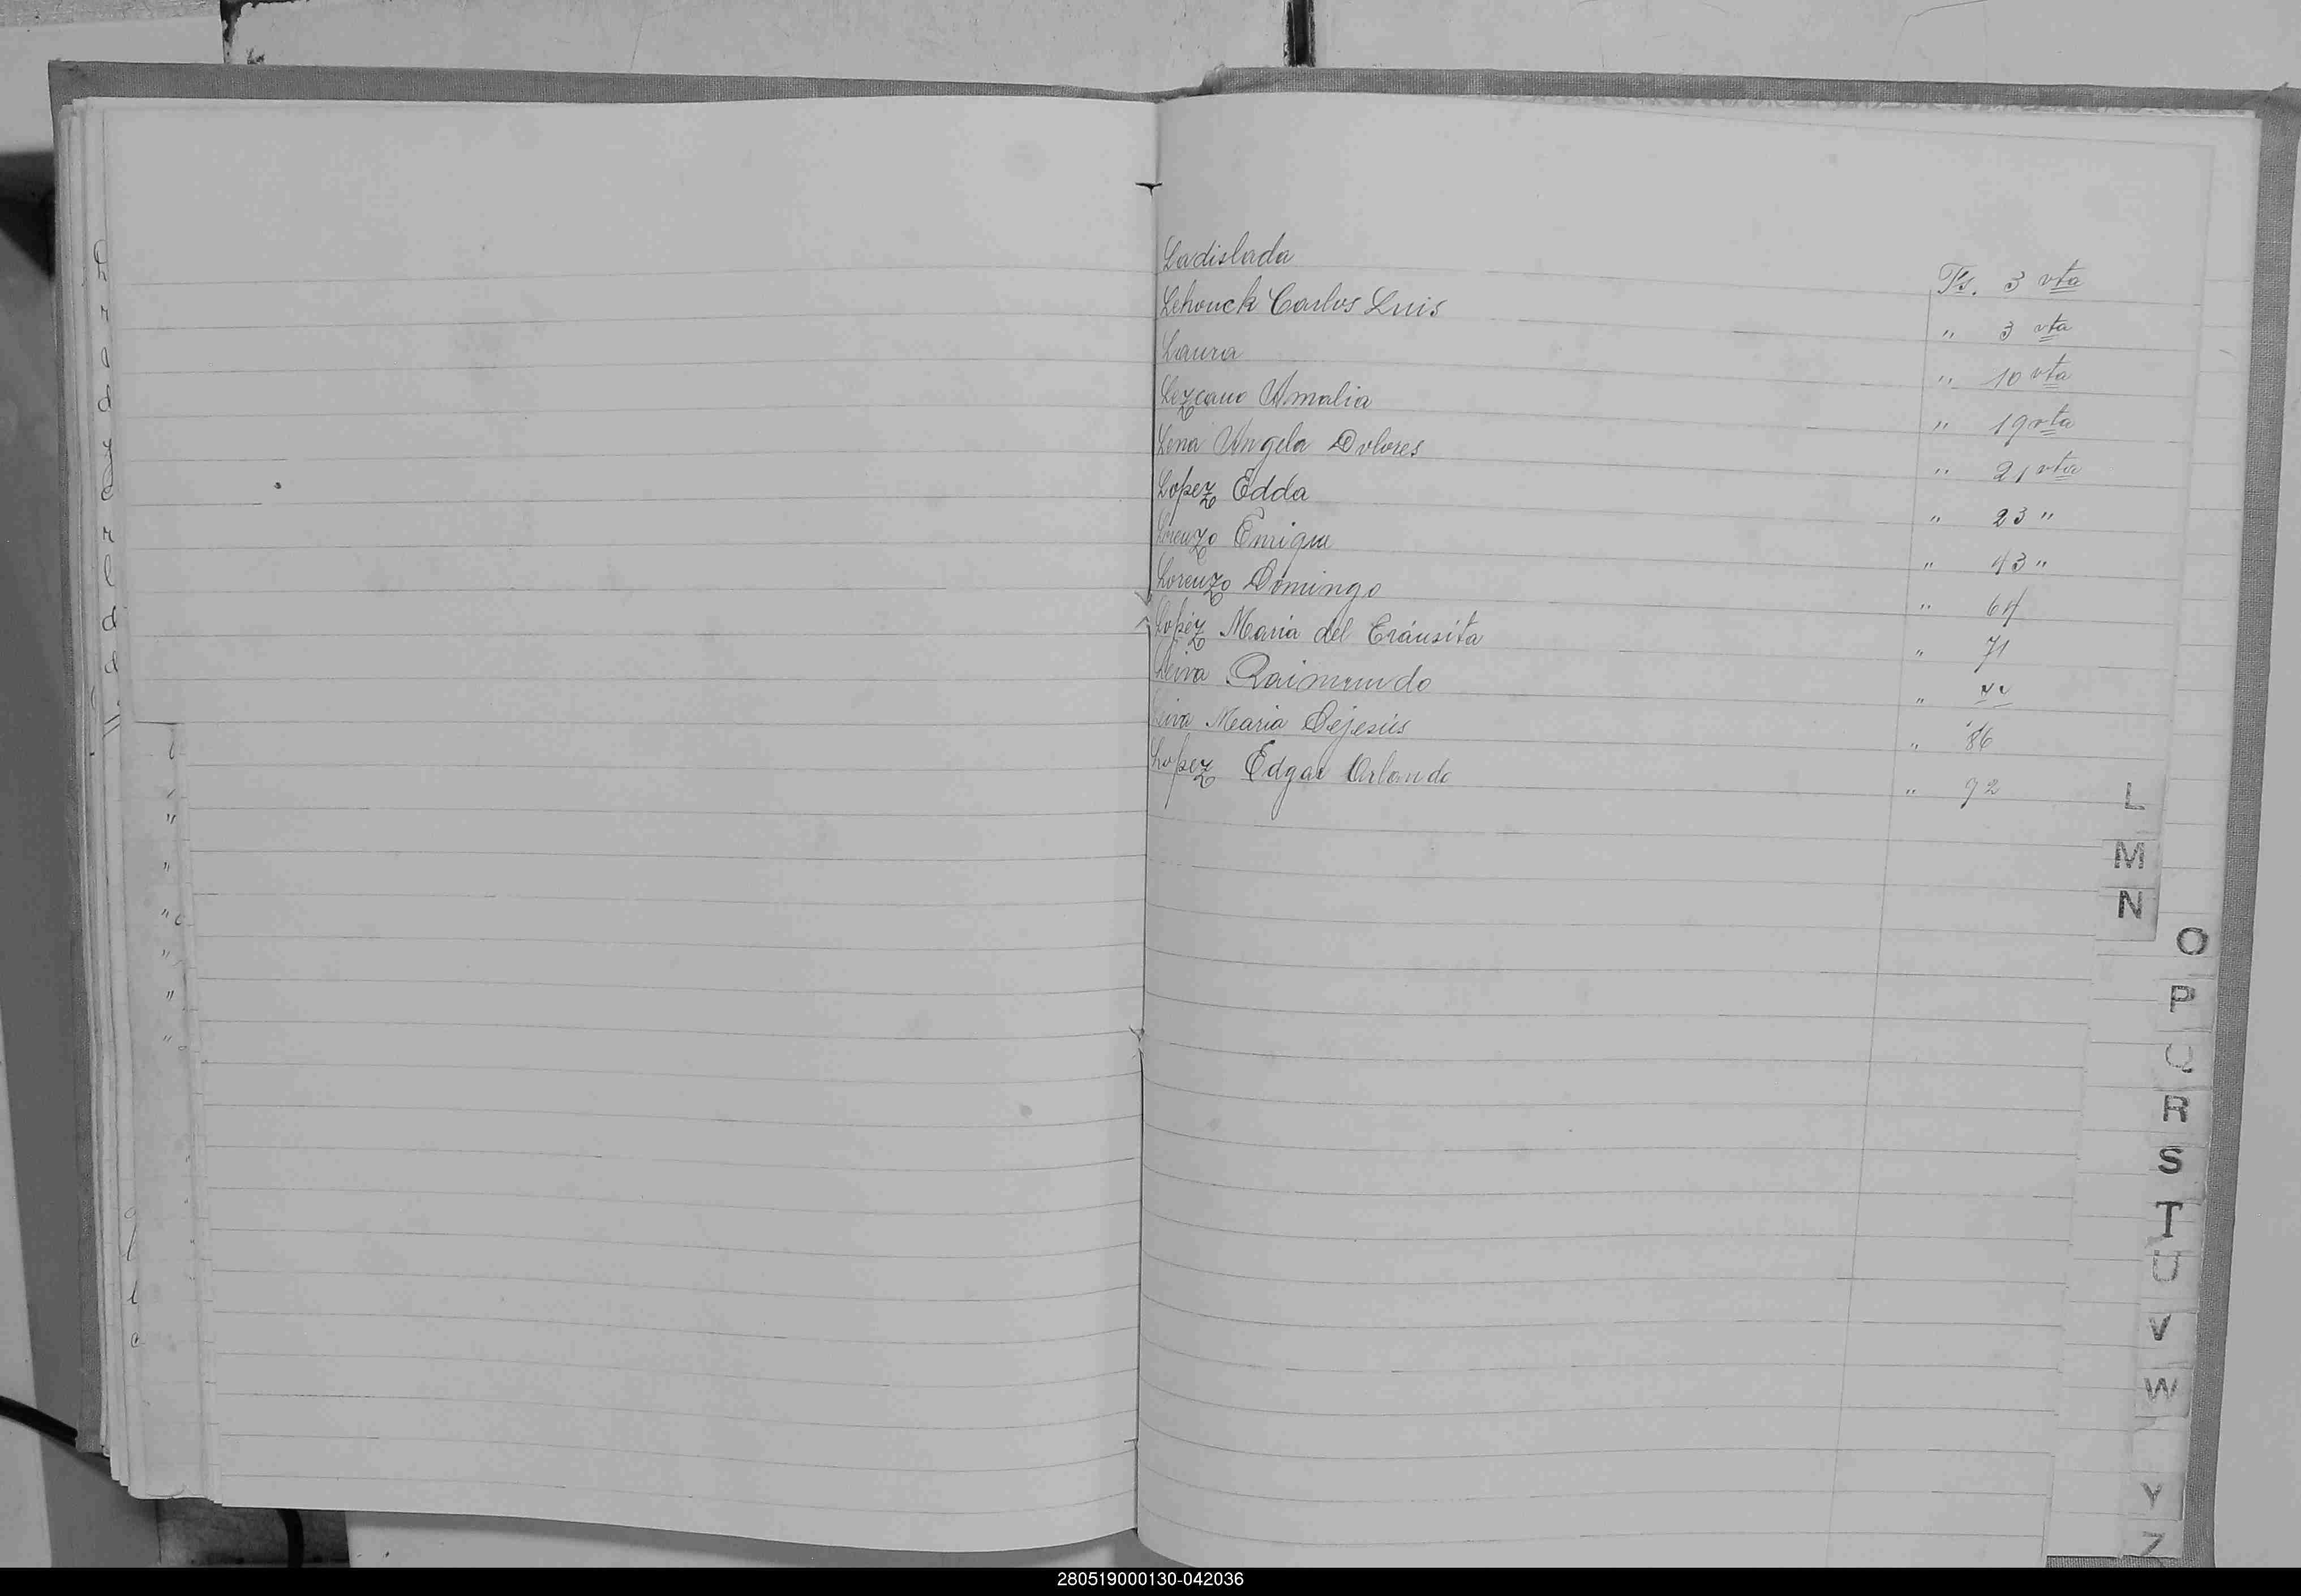 Ladislada Fs. 3 vta
Lehouck Carlos Luis " 3 vta
Laura " 10 vta
Lezcano Amalia " 19 vta
Lena Angela Dolores " 21 vta
Lopez Edda " 23 "
Lorenzo Enrique " 43 "
Lorenzo Domingo " 64
Lopez Maria del Tránsita " 71
Leiva Raimundo "
Leiva Maria Dejesús " 86
Lopez Edgar Orlando " 92
L
M
N
O
P
Q
R
S
T
U
V
W
Y
Z
280519000130-042036